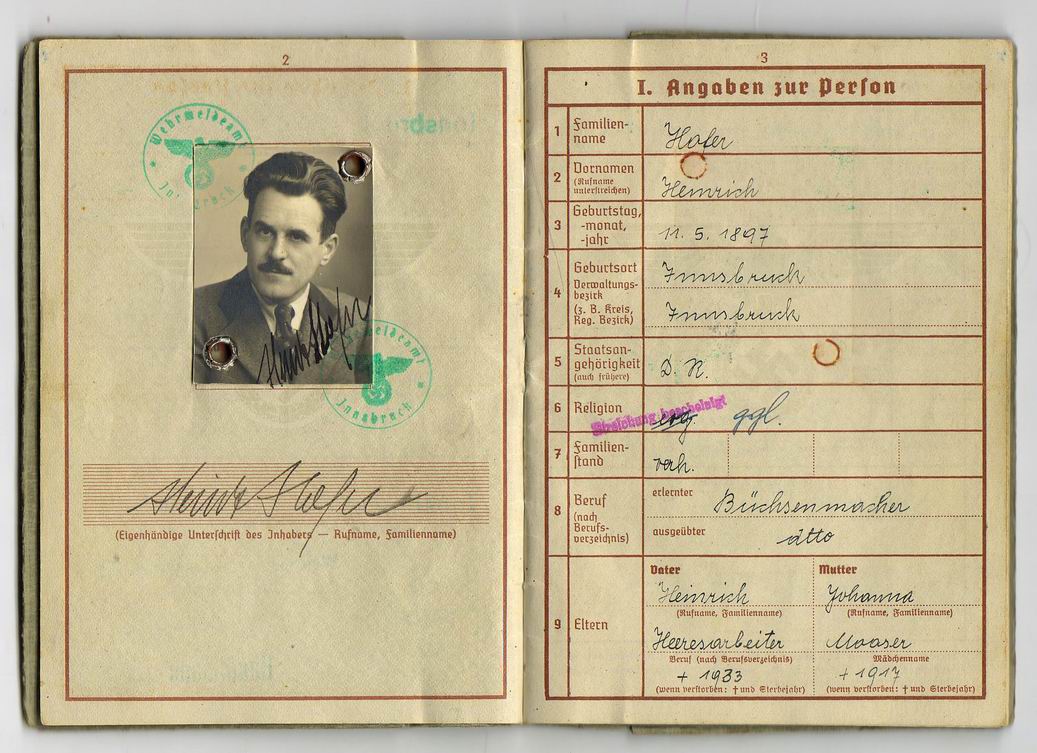 2
Wehrmeldeamt
Wehrmeldeamt
Innsbruck
Heinr Hofer
(Eigenhändige Unterschrift des Inhabers — Rufname, Familienname)
3
I. Angaben zur Person
1 Familien-
name
Hofer
2 Vornamen
(Rufname
unterstreichen)
Heinrich
3 Geburtstag,
-monat,
-jahr
11. 5. 1897
4 Geburtsort
Verwaltungs-
bezirk
(z. B. Kreis,
Reg. Bezirk)
Innsbruck
Innsbruck
5 Staatsan-
gehörigkeit
(auch frühere)
D. R.
6 Religion
Streichung bescheinigt
ggl.
7 Familien-
stand
verh.
8 Beruf
(nach
Berufs-
verzeichnis)
erlernter Büchsenmacher
ausgeübter dtto
9 Eltern
Vater Mutter
Heinrich Johanna
(Rufname, Familienname) (Rufname, Familienname)
Heeresarbeiter Moaser
Beruf (nach Berufsverzeichnis) Mädchenname
+ 1933 + 1917
(wenn verstorben: † und Sterbejahr) (wenn verstorben: † und Sterbejahr)